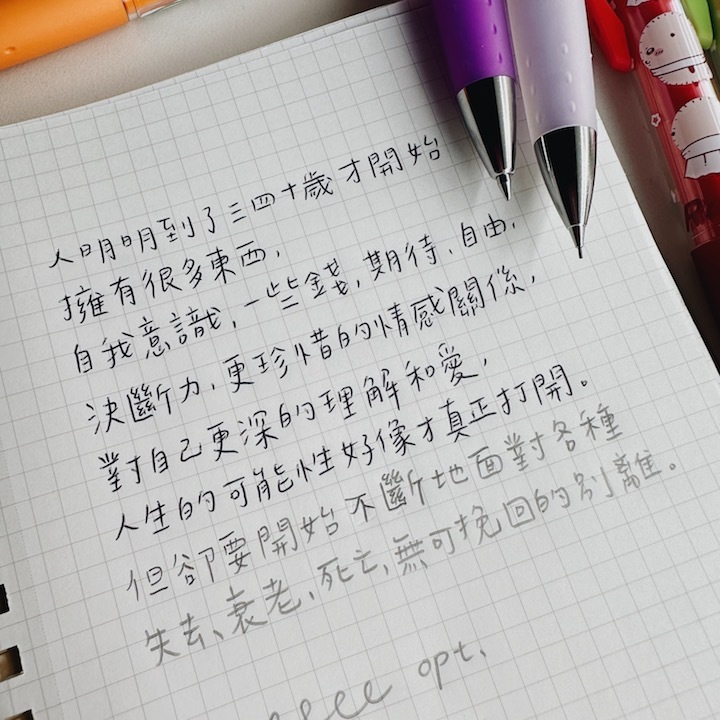 人明明到了三四十歲才開始
擁有很多東西,
自我意識,一些錢,期待、自由,
決斷力,更珍惜的情感關係,
對自己更深的理解和愛,
人生的可能性好像才真正打開。
但卻要開始不斷地面對各種
失去、衰老、死亡、無可挽回的別離。
opt.